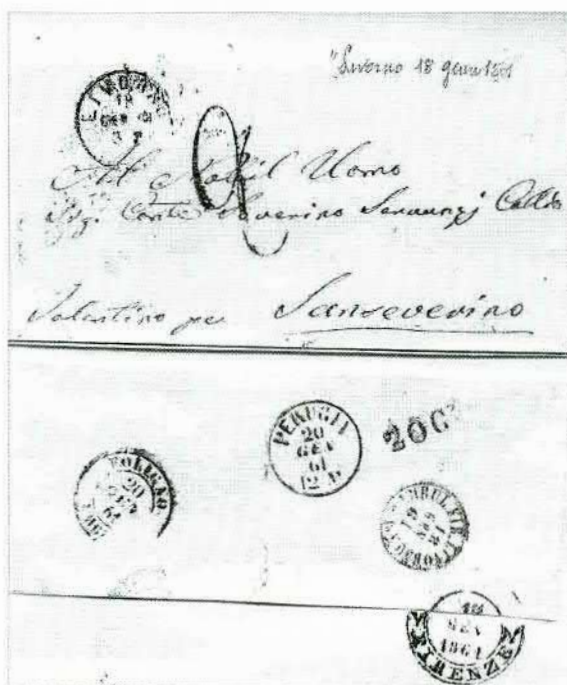 "Livorno 18 genn 1861
LIVORNO
18
GEN 61
3
Al Nobil Uomo
Sig. Conte Severino Servanzi Collio
Tolentino per Sanseverino
PERUGIA
20
GEN
61
12 M
20 C
FOLIGNO
20
GEN
61
AMBULANTE
19
GEN
61
18
GEN
1861
FIRENZE